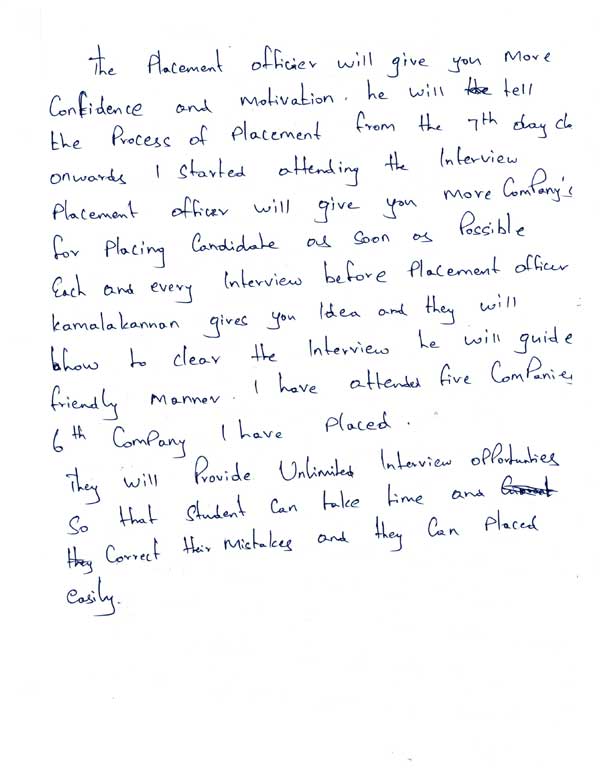 The Placement officier will give you More
Confidence and Motivation. he will the tell
the Process of Placement from the 7th day
onwards I started attending the Interview
Placement officer will give you more Company's
for Placing Candidate as soon as Possible
Each and every Interview before Placement officer
kamalakannan gives you Idea and they will
how to clear the Interview he will guide
friendly Manner. I have attended five Companies
6th Company I have Placed.
They will Provide Unlimited Interview opportunties
So that student Can take time and
they Correct their Mistakes and they Can Placed
easily.